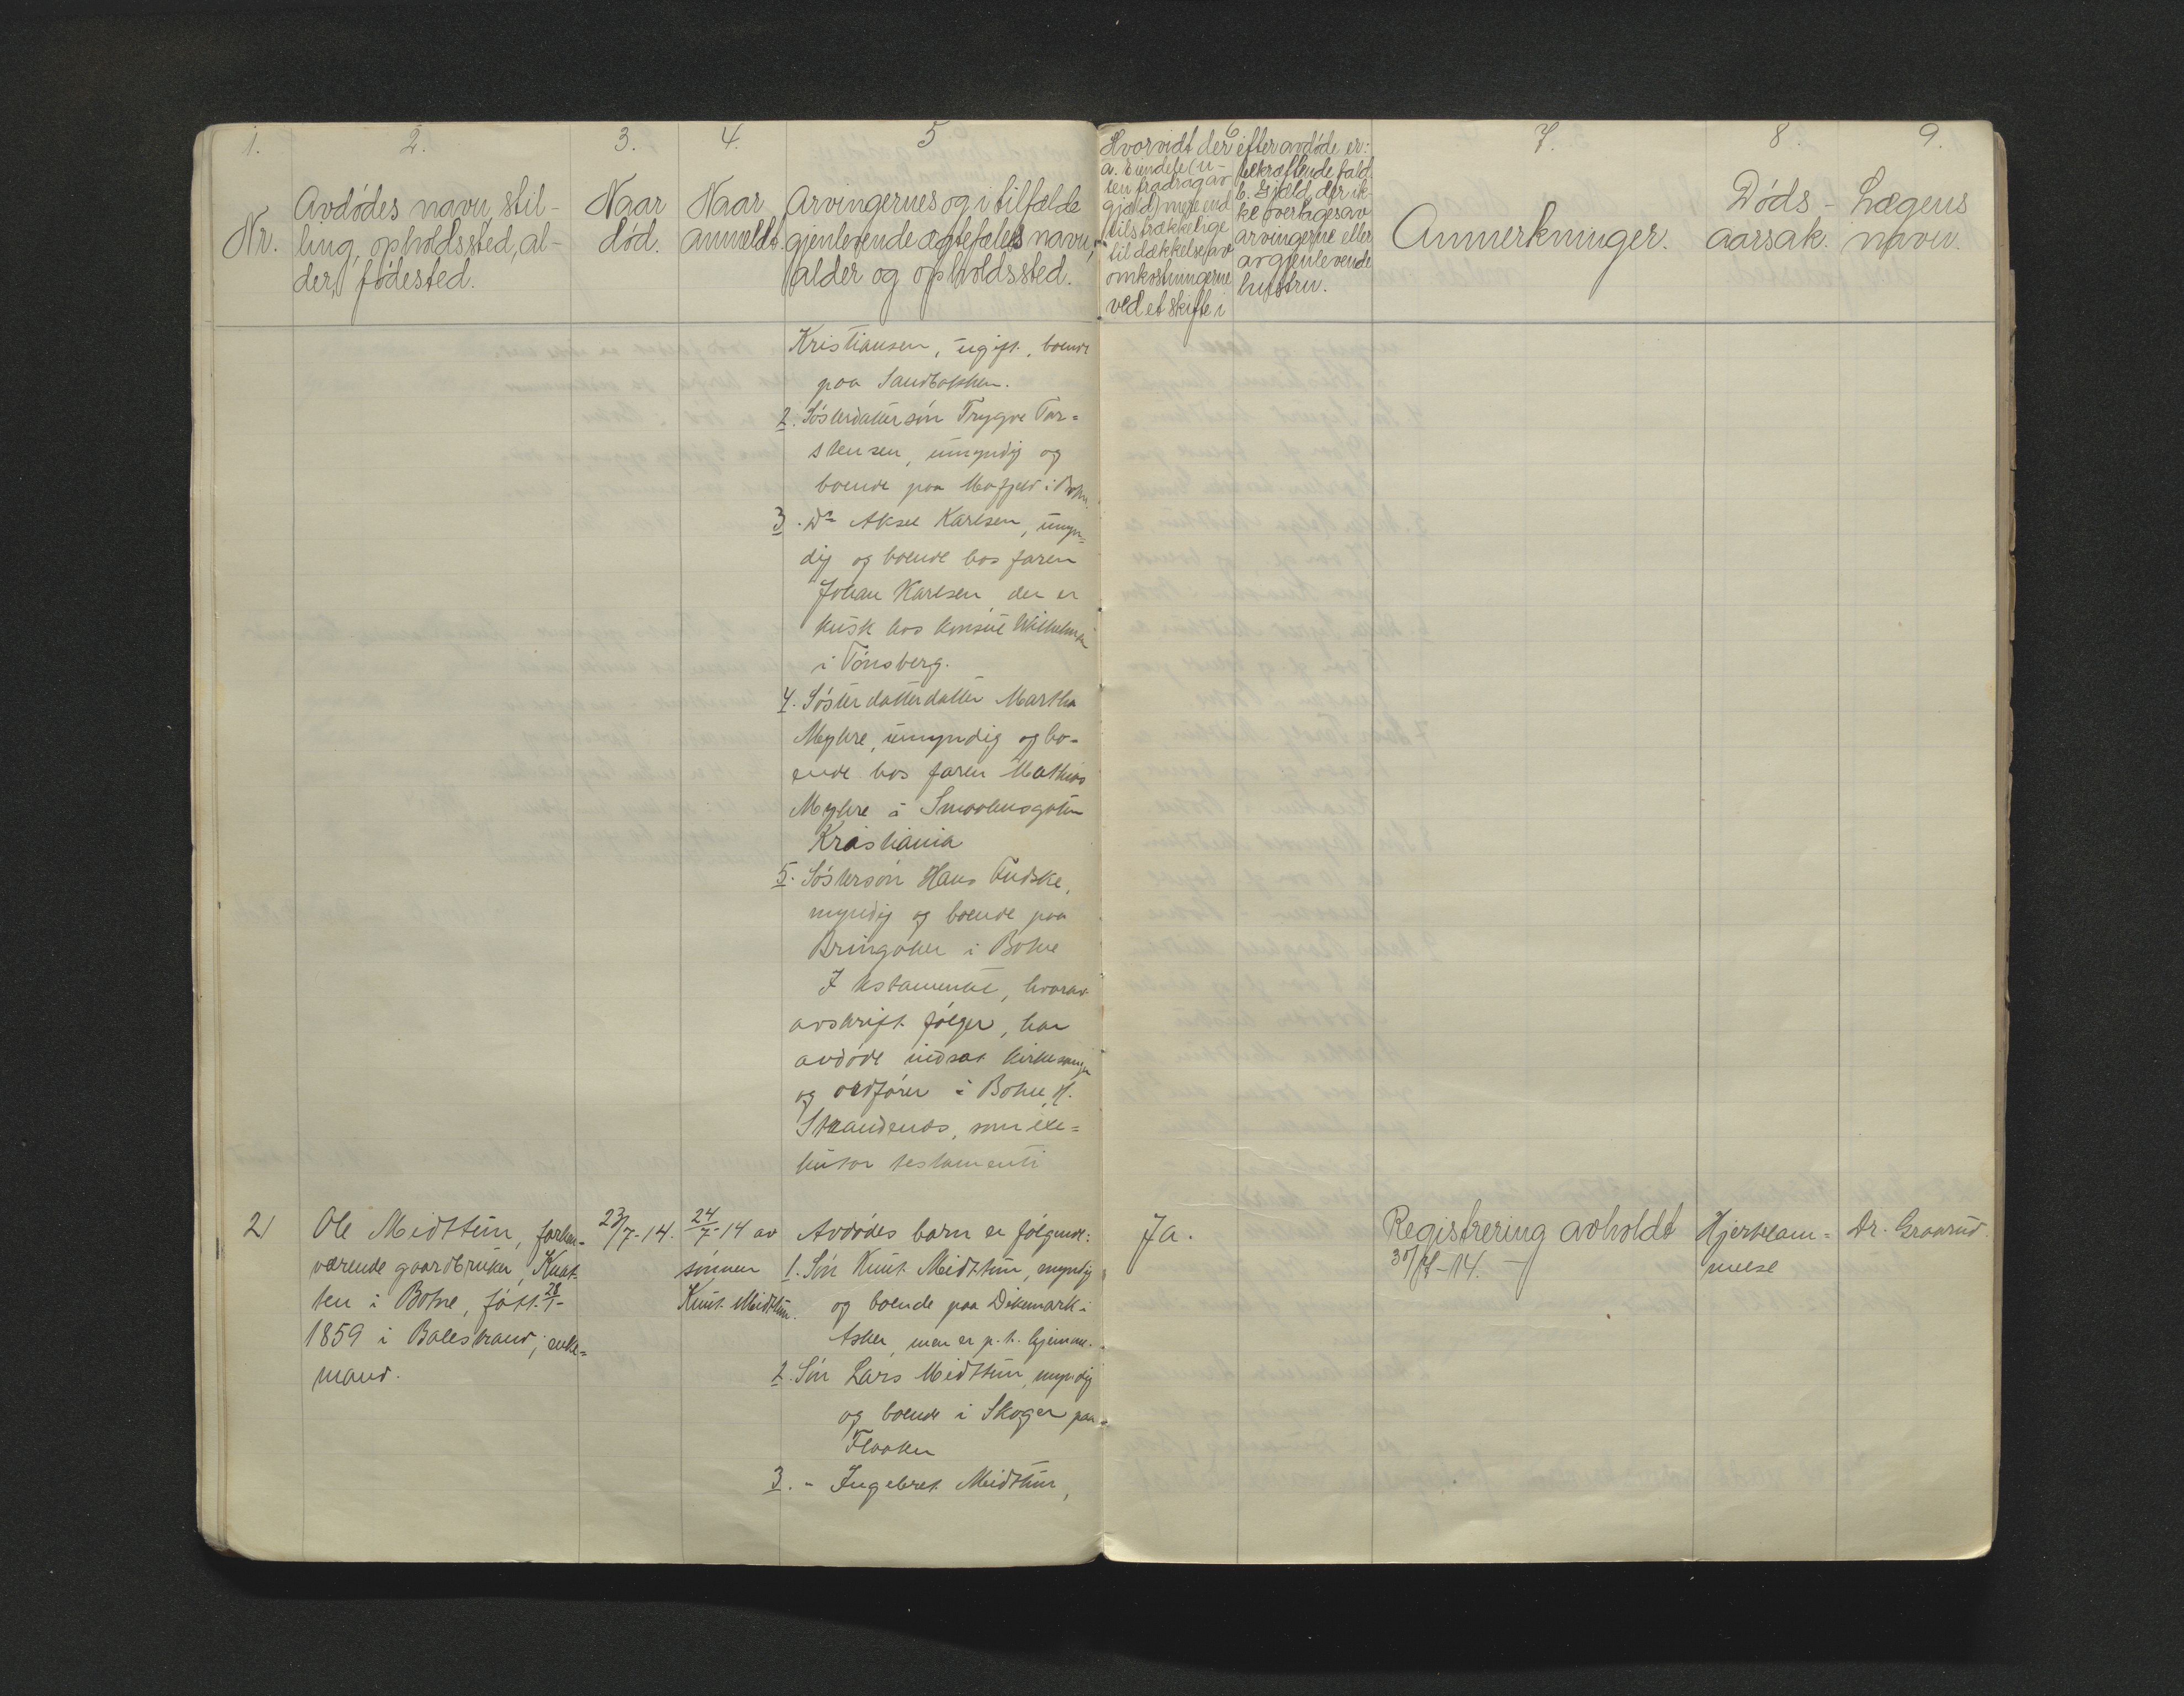 1. 2. 3. 4. 5 6 7. 8. 9.
Nr.
Avdødes navn, stil-
ling, opholdssted, al-
der, fødested.
Naar
død.
Naar
anmeldt.
Arvingernes og i tilfælde
gjenlevende ægtefælles navn,
alder og opholdssted.
Hvorvidt der efter avdøde er:
a. Eiendele (u-
ten fradrag av
gjæld) mere end
tilstrækkelige
til dækkelse av
omkostningerne
ved et skifte i
bekræftende fald.
b. Gjæld, der ik-
ke overtages av
arvingerne eller
av gjenlevende
hustru.
Anmerkninger.
Døds-
aarsak.
Lægens
navn.
Kristiansen, ugift, boende
paa Sandbakken.
2. Søsterdattersøn Trygve Tor-
stensen, umyndig og
boende paa i Botne.
3. Do Aksel Karlsen, umyn-
dig og boende hos faren
Johan Karlsen, der er
kusk hos konsul Wilhelmsen
i Tønsberg.
4. Søsterdatterdatter Martha
Myhre, umyndig og bo-
ende hos faren Mathias
Myhre i Smaalensgaten
Kristiania
5. Søstersøn Hans Tudske,
myndig og boende paa
Bringaker i Botne
I testamentet, hvorav
avskrift følger, har
avdøde indsat kirkesanger
og ordfører i Botne, H.
Strandenæs, som exe-
kutor testamenti
21
Ole Midttun, forhen-
værende gaardbruker, Knat-
ten i Botne, født 28/1-
1859 i Balestrand; enke-
mand.
23/7-14.
24/7-14 av
sønnen
Knut Midttun.
Avdødes barn er følgende:
1. Søn Knut Midttun, myndig
og boende paa Dikemark i
Asker, men er p.t. hjemme.
2. Søn Lars Midttun, myndig
og boende i Skoger paa
Flaaten
3. - Ingebret Midttun,
Ja.
Registrering avholdt
30/7-14.
Hjertelam-
melse
Dr. Graarud.